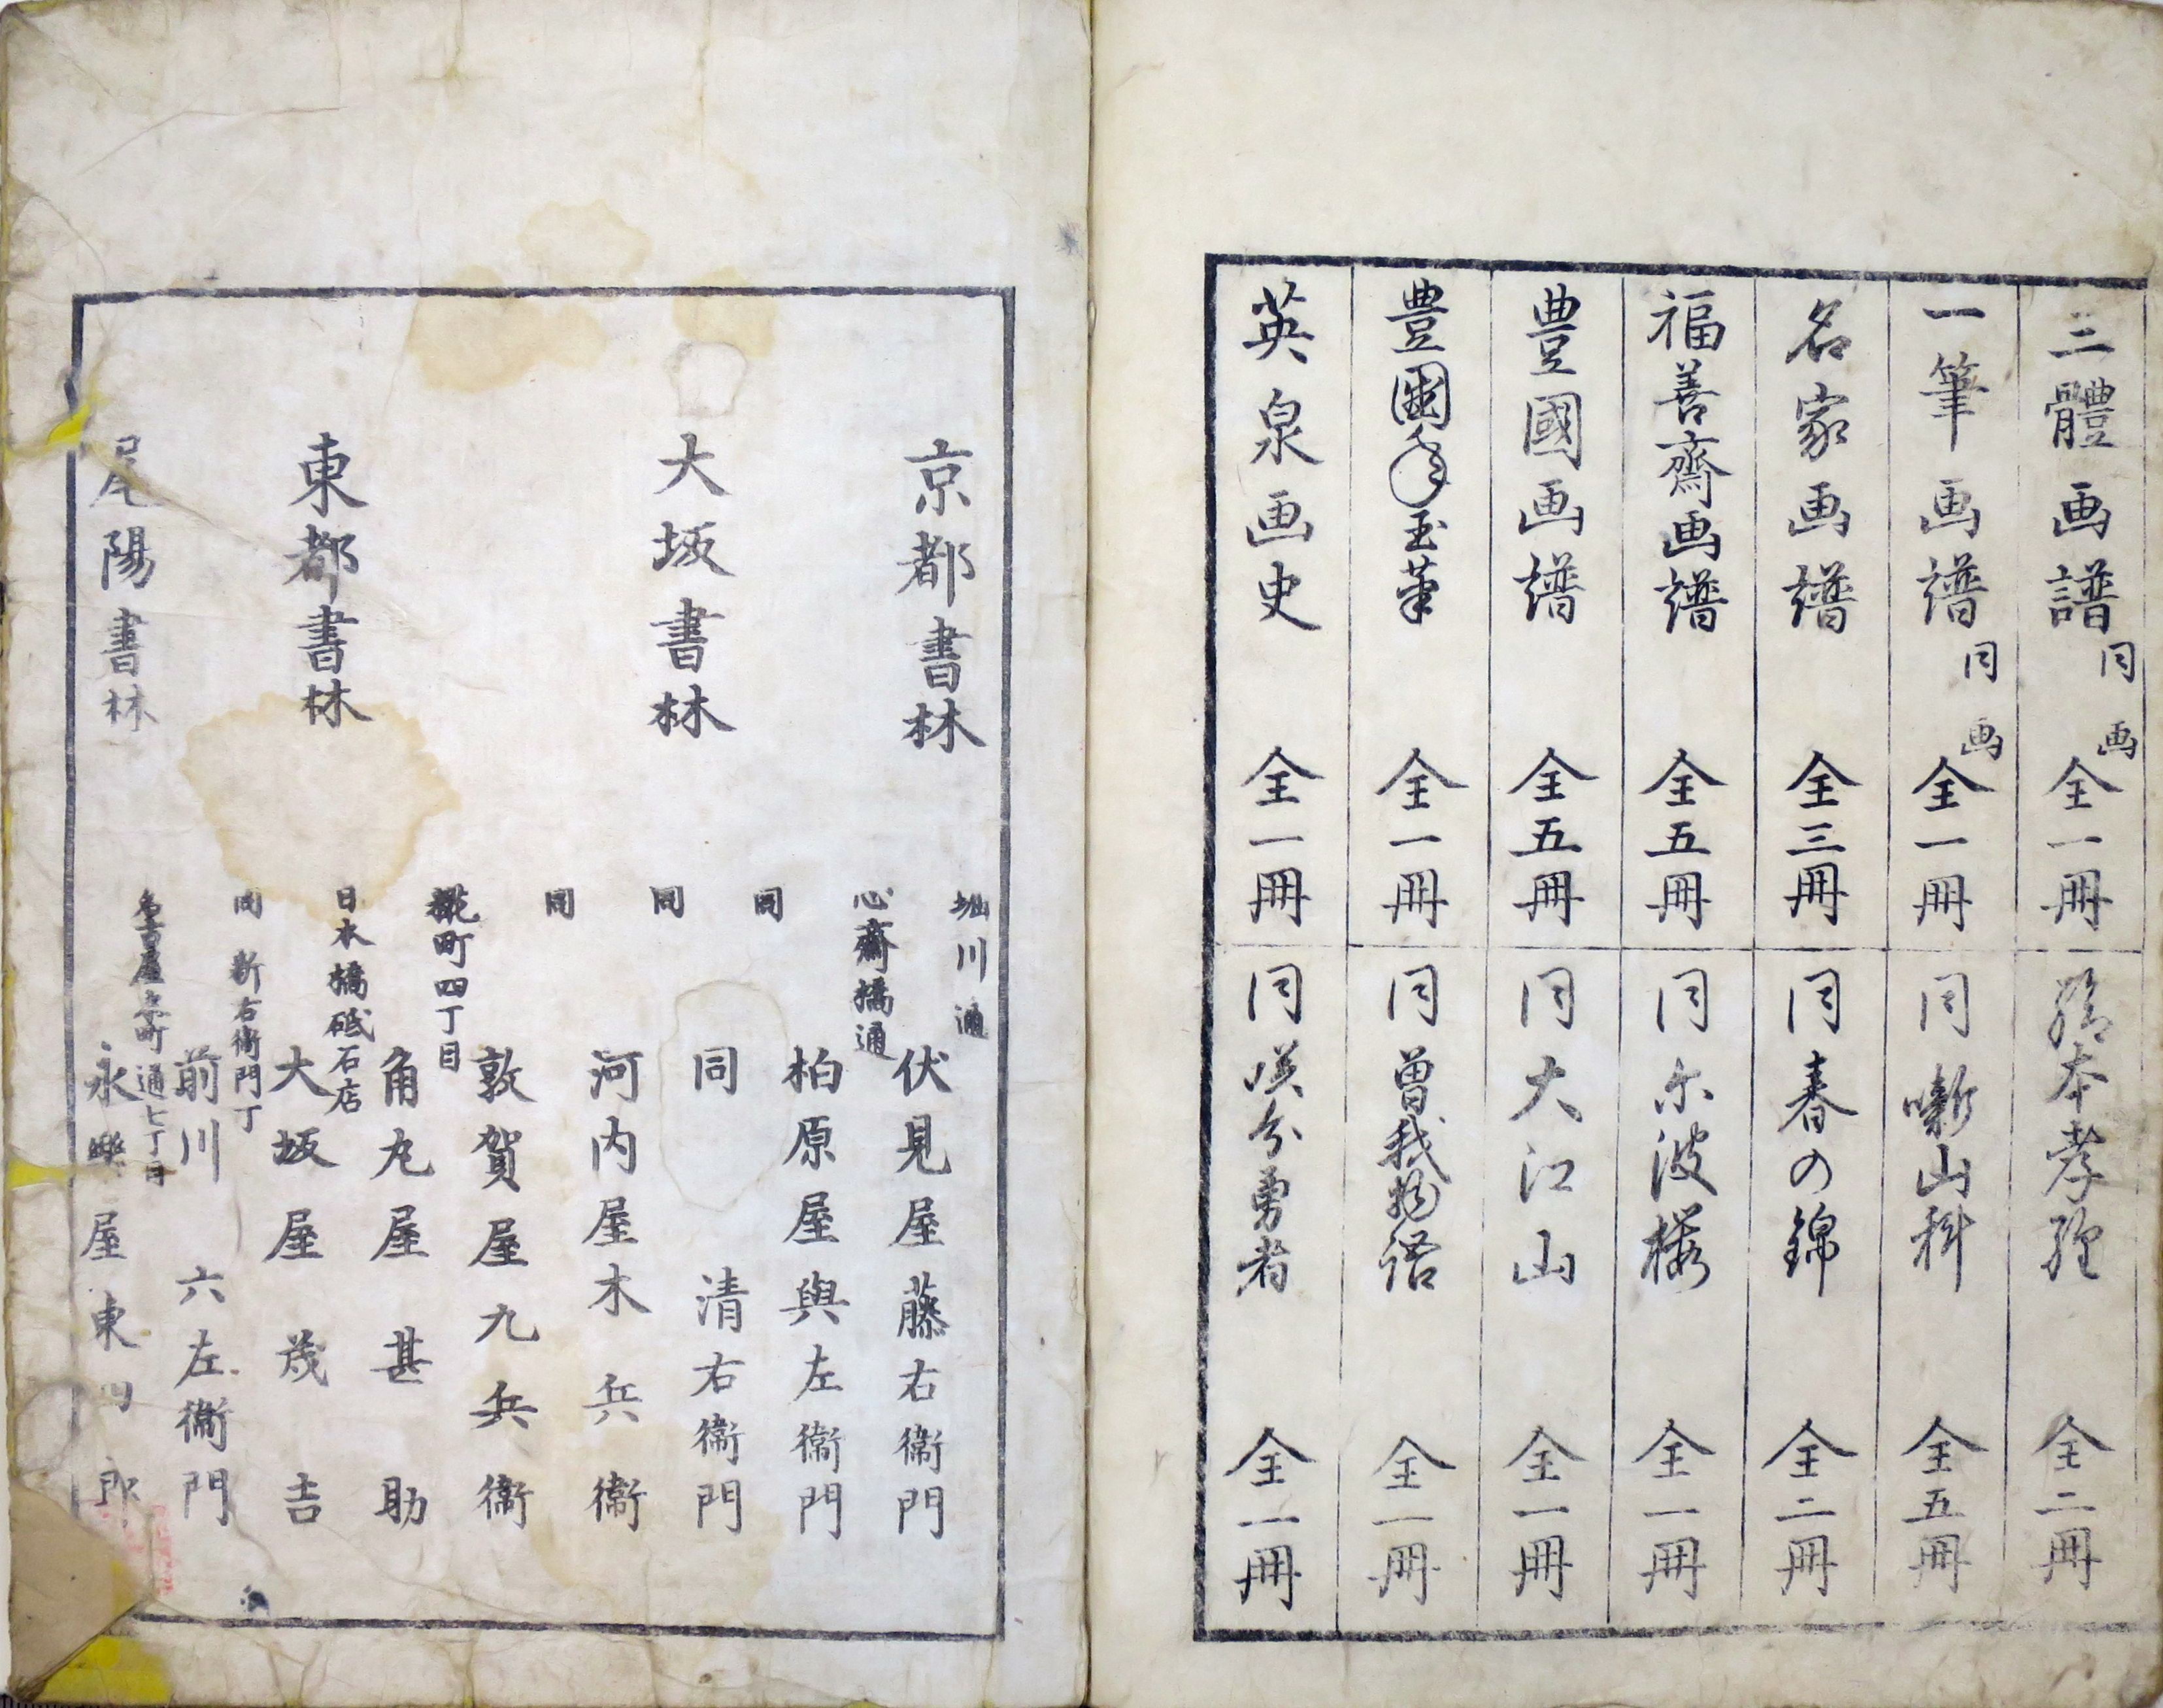 三體画譜 同画 全一冊
一筆画譜 同画 全一冊
名家画譜 全三冊
福善齋画譜 全五冊
豊國画譜 全五冊
豊國年玉筆 全一冊
英泉画史 全一冊
絵本孝経 全二冊
同 噺山科 全五冊
同 春の錦 全二冊
同 尓波桜 全一冊
同 大江山 全一冊
同 曽我物語 全一冊
同 咲分勇者 全一冊
京都書林
堀川通
伏見屋藤右衞門
大坂書林
心齋橋通
柏原屋與左衞門
同
同 清右衞門
同
河内屋木兵衞
同
敦賀屋九兵衞
東都書林
麹町四丁目
角丸屋甚助
日本橋砥石店
大坂屋茂吉
同 新右衞門丁
前川六左衞門
尾陽書林
名古屋本町通七丁目
永樂屋東四郎